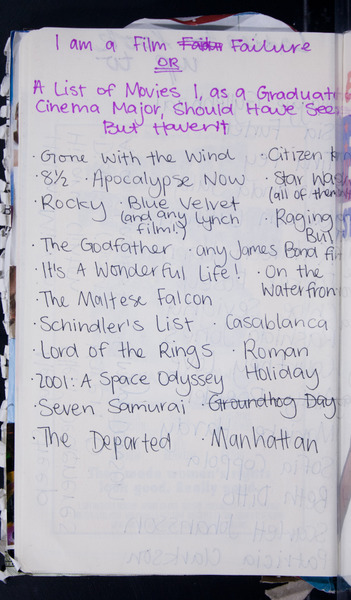 I am a Film Failure
OR
A List of Movies I, as a Graduate
Cinema Major, Should Have See
But Haven't
· Gone with the Wind · Citizen
· 8½ · Apocalypse Now · Star Wars
· Rocky · Blue Velvet (all of them
(and any Lynch film!) · Raging Bull
· The Godfather · any James Bond
· It's A Wonderful Life! · On the
· The Maltese Falcon Waterfron
· Schindler's List · Casablanca
· Lord of the Rings · Roman
· 2001: A Space Odyssey Holiday
· Seven Samurai · Groundhog Day
· The Departed · Manhattan